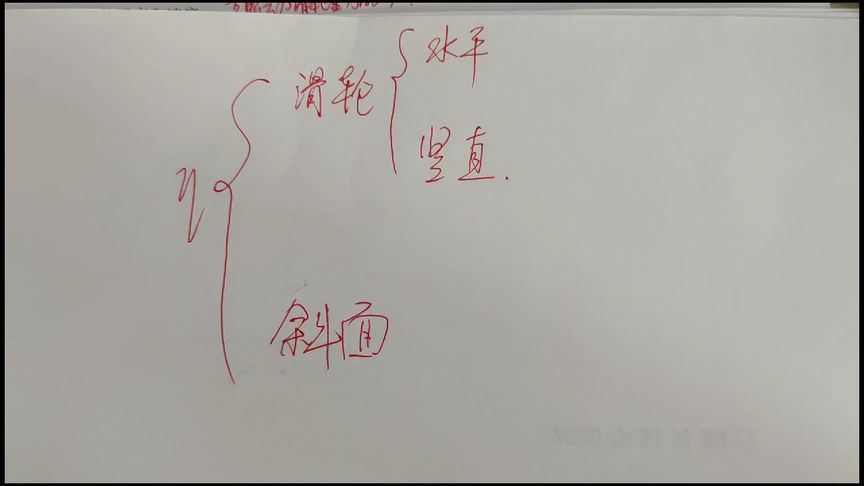 水平
滑轮
竖直.
η
斜面